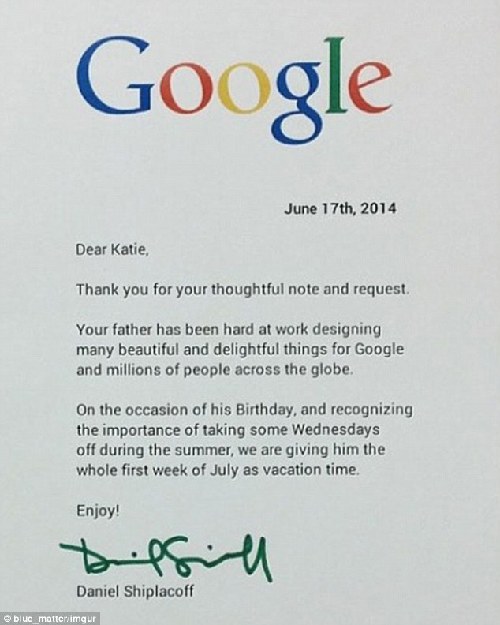 Google
June 17th, 2014
Dear Katie,
Thank you for your thoughtful note and request.
Your father has been hard at work designing
many beautiful and delightful things for Google
and millions of people across the globe.
On the occasion of his Birthday, and recognizing
the importance of taking some Wednesdays
off during the summer, we are giving him the
whole first week of July as vacation time.
Enjoy!
Daniel Shiplacoff
© blue_matter/imgur